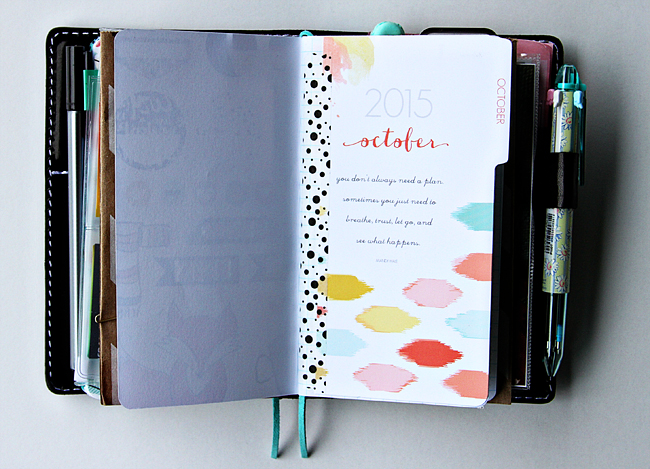 2015
october
you don't always need a plan.
sometimes you just need to
breathe, trust, let go, and
see what happens.
OCTOBER